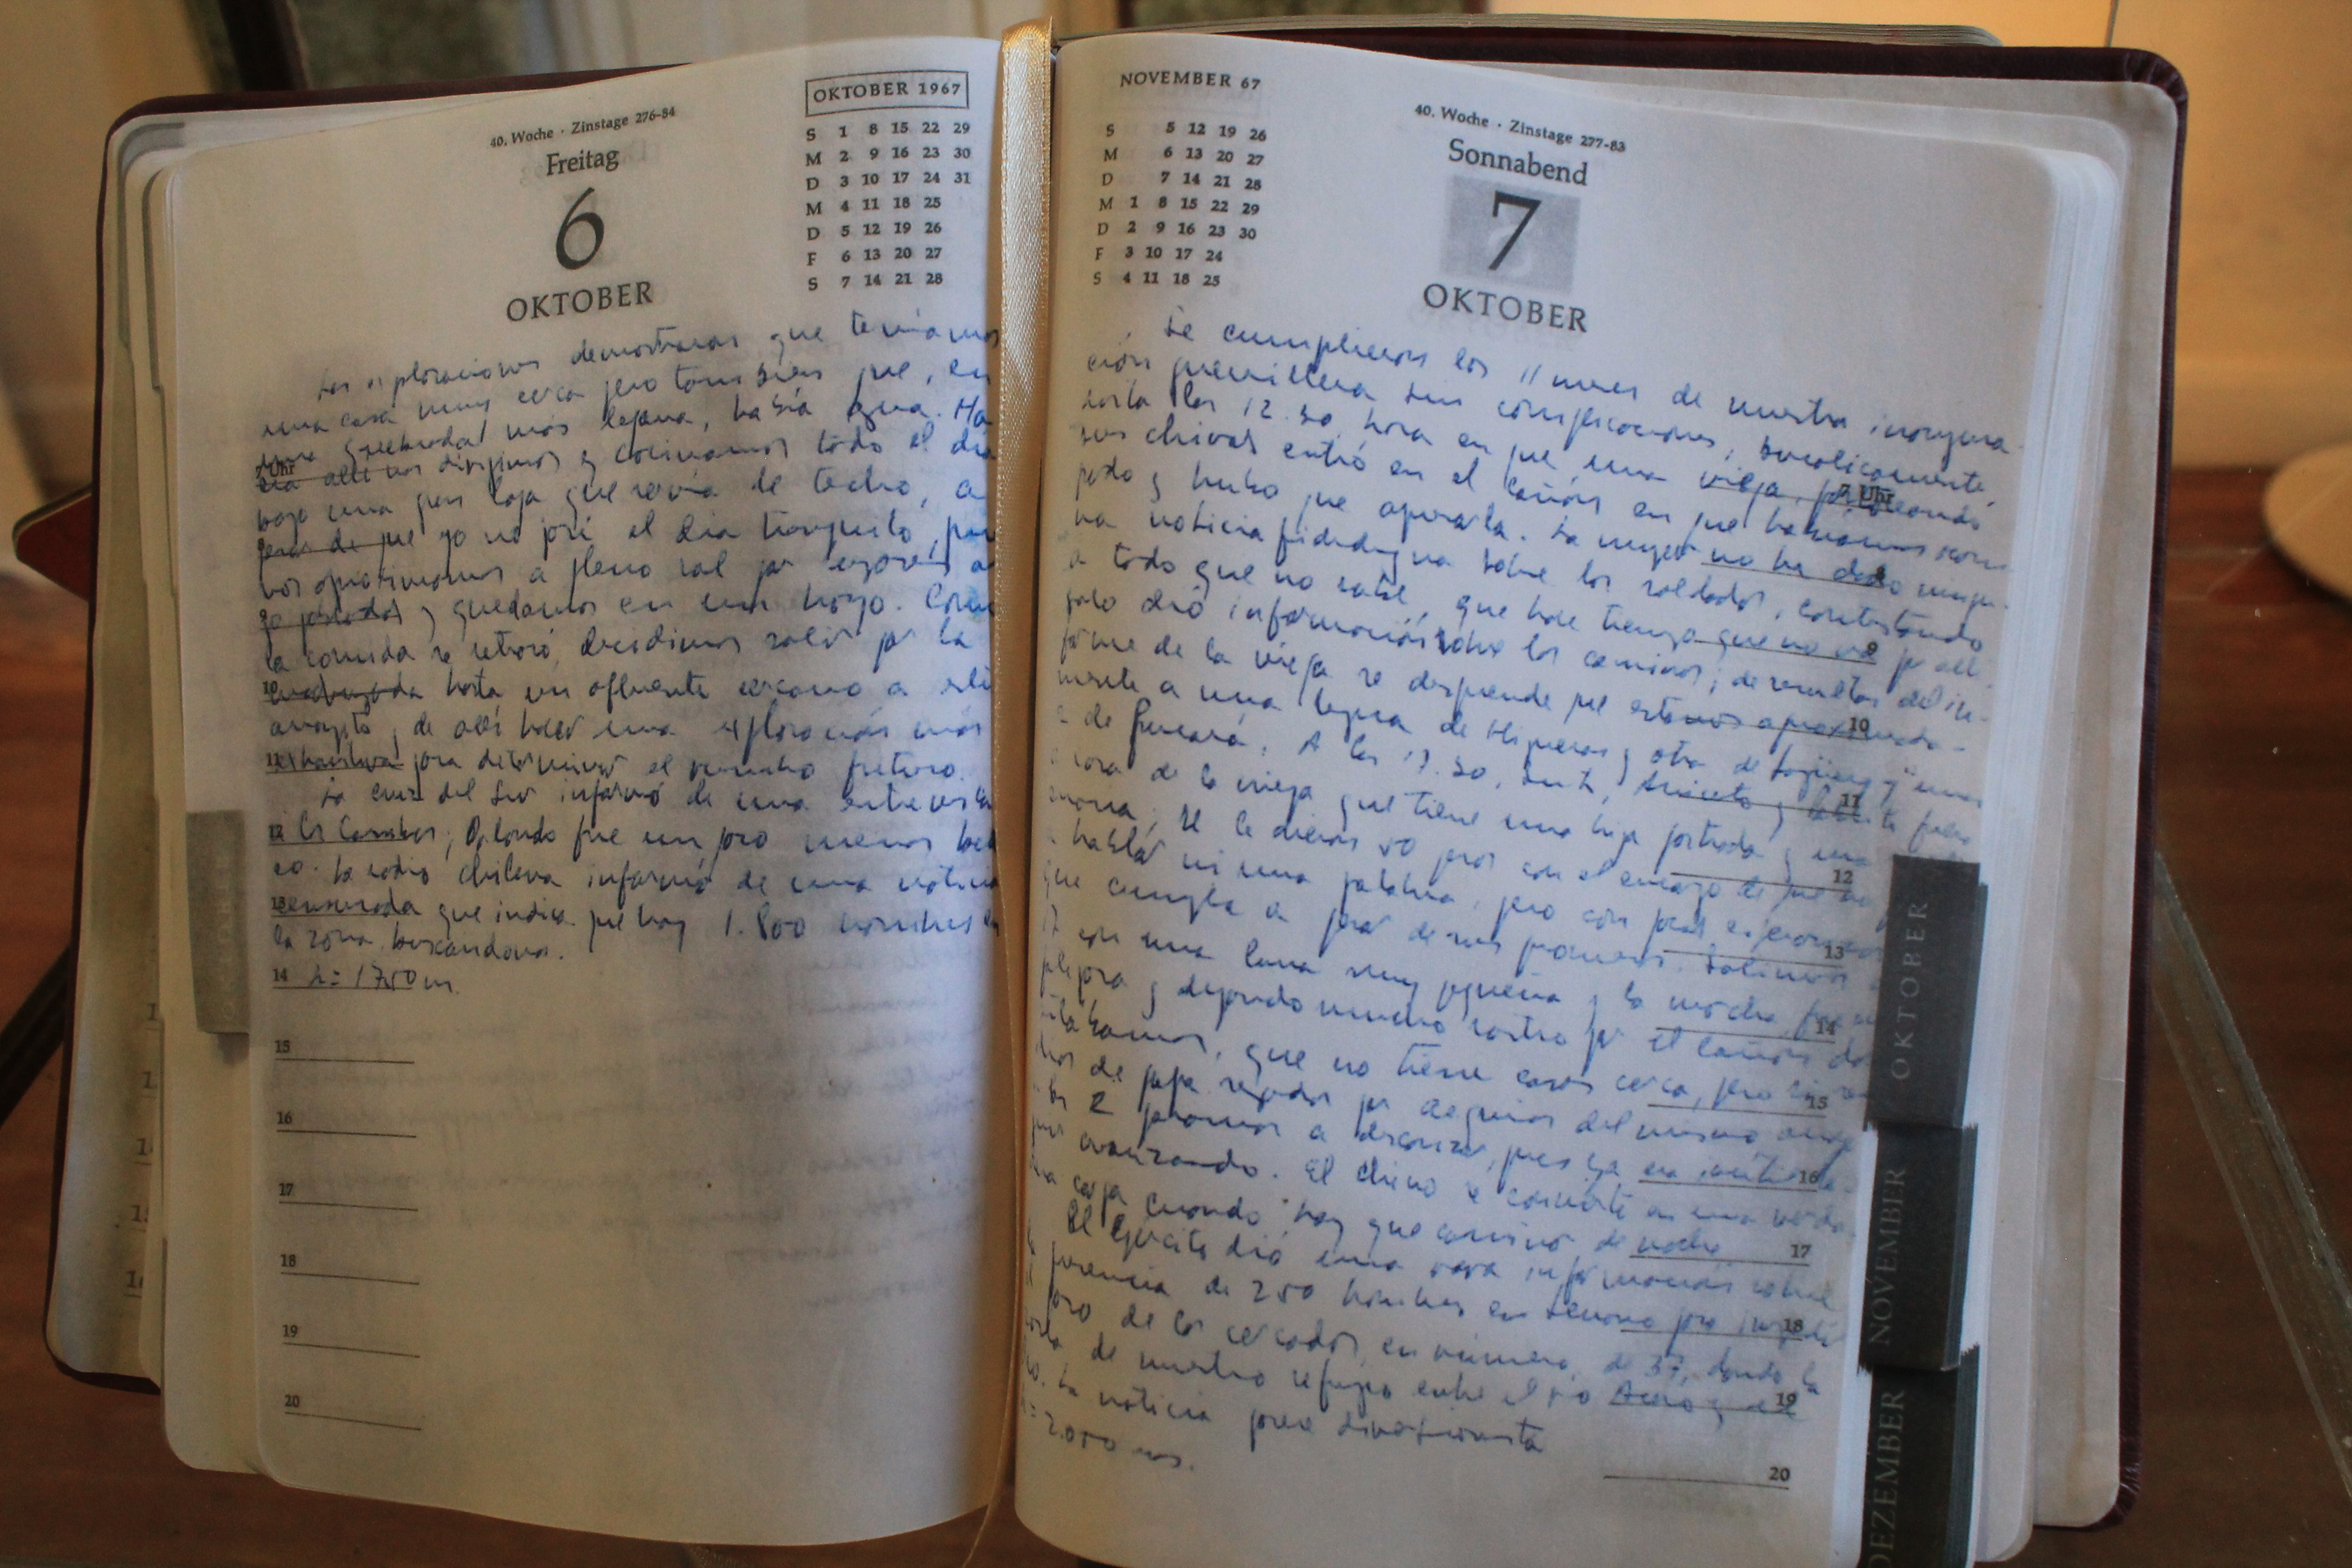 40. Woche · Zinstage 276-84
Freitag
6
OKTOBER
OKTOBER 1967
S 1 8 15 22 29
M 2 9 16 23 30
D 3 10 17 24 31
M 4 11 18 25
D 5 12 19 26
F 6 13 20 27
S 7 14 21 28
Las exploraciones demostraron que teníamos
una casa muy cerca pero también que, en
una quebrada más lejana, había agua. Ha
7 Uhr
cia allí nos dirigimos y cocinamos todo el día
bajo una gran laja que servía de techo, a
pesar de que yo no pasé el día tranquilo, pues
nos aproximamos a pleno sol por lugares al
go poblados y quedamos en un hoyo. Como
la comida se retrasó, decidimos salir por la
10 madrugada hasta un afluente cercano a este
arroyito y de allí hacer una exploración más
11 exhaustiva para determinar el rumbo futuro.
La Cruz del Sur informó de una entrevista
12 a los Cambas; Orlando fue un poco menos bella
co. La radio chilena informó de una noticia
13 censurada que indica que hay 1.800 hombres en
la zona buscandonos.
14 h = 1750 m.
15
16
17
18
19
20
NOVEMBER 67
S 5 12 19 26
M 6 13 20 27
D 7 14 21 28
M 1 8 15 22 29
D 2 9 16 23 30
F 3 10 17 24
S 4 11 18 25
40. Woche · Zinstage 277-83
Sonnabend
7
OKTOBER
Se cumplieron los 11 meses de nuestra inaugura
ción guerrillera sin complicaciones, bucolicamente,
hasta las 12.30, hora en que una vieja, pastoreando
7 Uhr
sus chivas entró en el cañón en que habíamos acam
pado y hubo que apresarla. La mujer no ha dado ningu
na noticia fidedigna sobre los soldados, contestando
a todo que no sabe, que hace tiempo que no va por allí.
9
Solo dió información sobre los caminos; de resultas del in-
forme de la vieja se desprende que estamos aproximada-
10
mente a una legua de Higueras y otra de Jagüey y unas
2 de Pucará. A las 17.30, Inti, Aniceto y Pablito fueron
11
a casa de la vieja que tiene una hija postrada y una
enana; se le dieron 50 pesos con el encargo de que no
12
hablar ni una palabra, pero con pocas esperanzas
que cumpla a pesar de sus promesas. Salimos
13
17 con una luna muy pequeña y la marcha fue
14
y dejando mucho rastro por el cañón do
estabamos, que no tiene casas cerca, pero
15
de papa regados por acequias del mismo
las 2 paramos a descansar, pues ya era inútil
16
avanzando. El chino se convierte en una verda
carga cuando hay que caminar de noche
17
El Ejército dió una rara información sobre
presencia de 250 hombres en Serrano para impedir
18
paso de los cercados en número de 37, dando la
de nuestro refugio entre el río Acero y el
19
La noticia parece diversionista
h = 2.000 ms.
20
OKTOBER
NOVEMBER
DEZEMBER